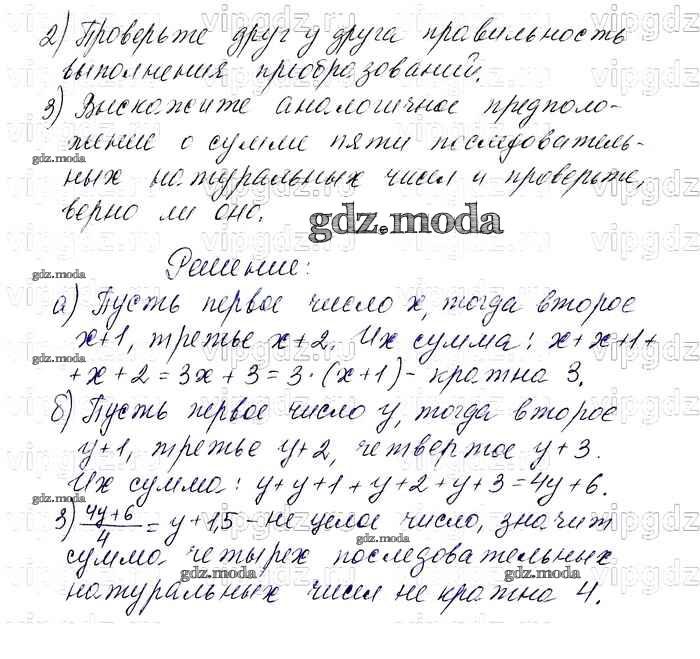 2) Проверьте друг у друга правильность
выполнения преобразований.
3) Выскажите аналогичное предполо-
жение о сумме пяти последователь-
ных натуральных чисел и проверьте,
верно ли оно.
gdz.moda
gdz.moda
Решение:
gdz.moda
а) Пусть первое число x, тогда второе
x+1, третье x+2. Их сумма: x+x+1+
gdz.moda
+x+2=3x+3=3·(x+1)- кратна 3.
б) Пусть первое число y, тогда второе
y+1, третье y+2, четвертое y+3.
Их сумма: y+y+1+y+2+y+3=4y+6.
gdz.moda
3) (4y+6)/4 = y+1,5 - не целое число, значит
gdz.moda
сумма четырех последовательных
gdz.moda gdz.moda gdz.moda
натуральных чисел не кратна 4.
vipgdz